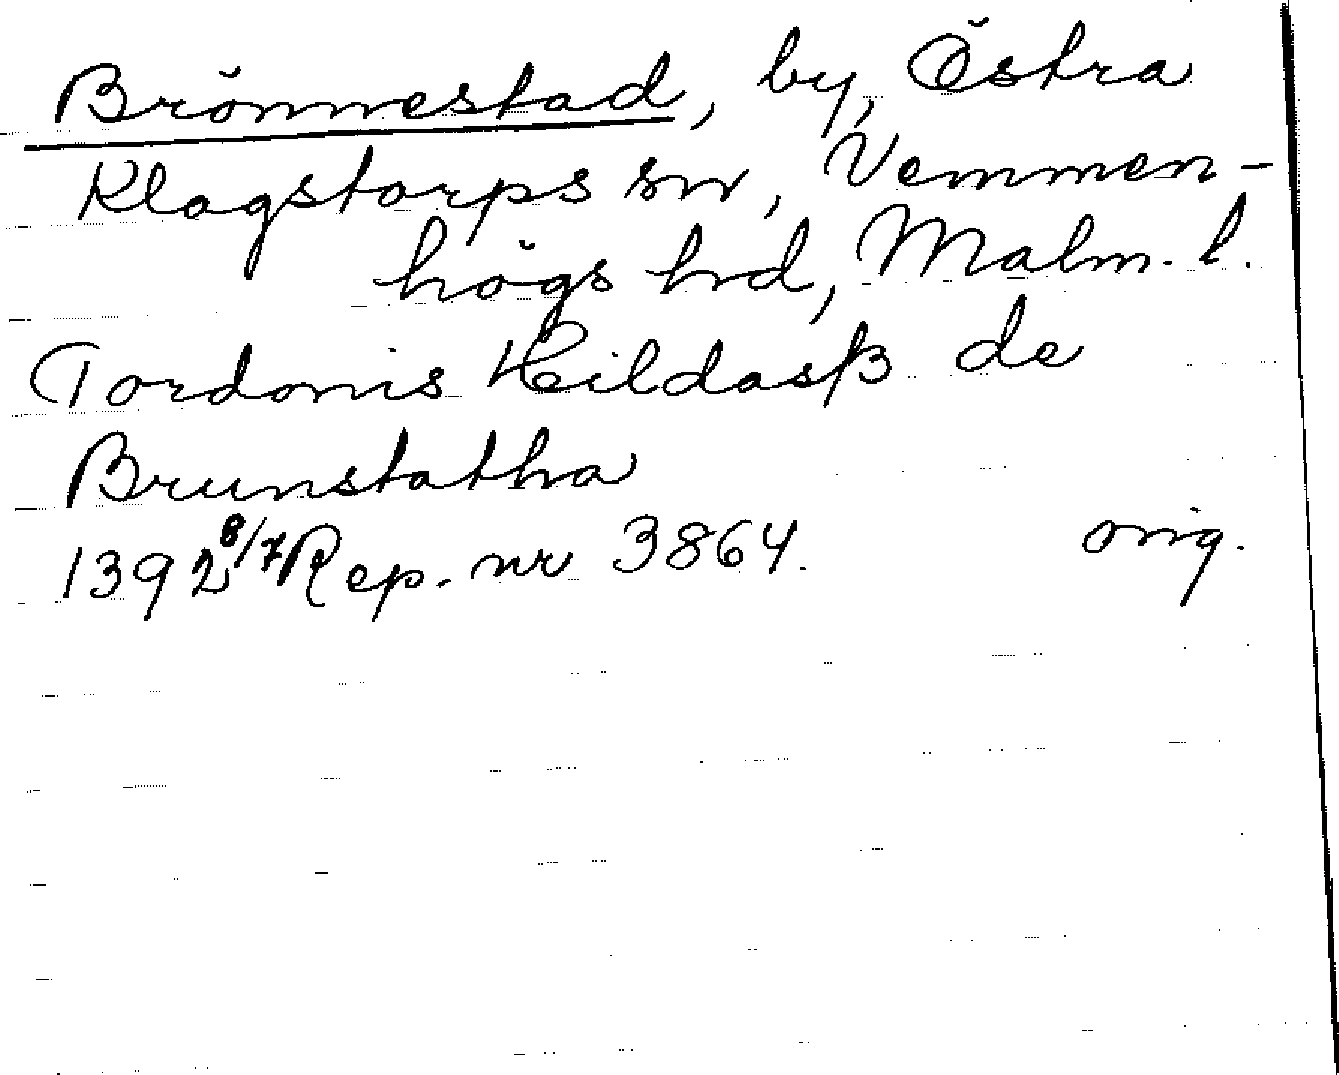 Brönnestad, by, Östra
Klagstorps sn, Vemmen-
högs hd, Malm. l.
Tordonis Keildasß de
Brunstatha
1392 8/7 Rep. nr 3864. orig.